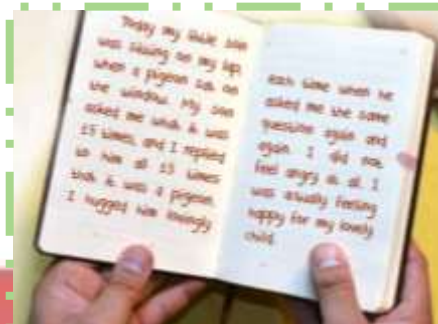 Today my little son
was sitting on my lap,
when a pigeon sat on
the window. My son
asked me what it was
15 times, and I replied
to him all 15 times
that it was a pigeon.
I hugged him lovingly
each time when he
asked me the same
question again and
again. I did not
feel angry at all. I
was actually feeling
happy for my lovely
child.